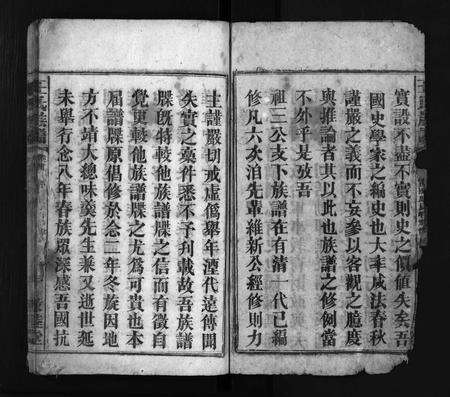 實設不盡不實則史之價值失矣吾
國史學家之編史也大率咸法春秋
謹嚴之義而不妄參以客觀之臆度
與推論者其以此也族譜之修例當
不外乎是攷吾
祖三公支下族譜在有清一代已編
修凡六次洎先輩維新公經修則力
主謹嚴切戒虛僞舉年湮代遠傳聞
失實之藁件悉不予刋載故吾族譜
牒旣特較他族譜牒之信而有徵自
覺更較他族譜牒之尤爲可貴也本
屆譜牒原倡修於念二年冬旋因地
方不靖大總味羮先生兼又逝世延
未舉行念八年春族眾深感吾國抗